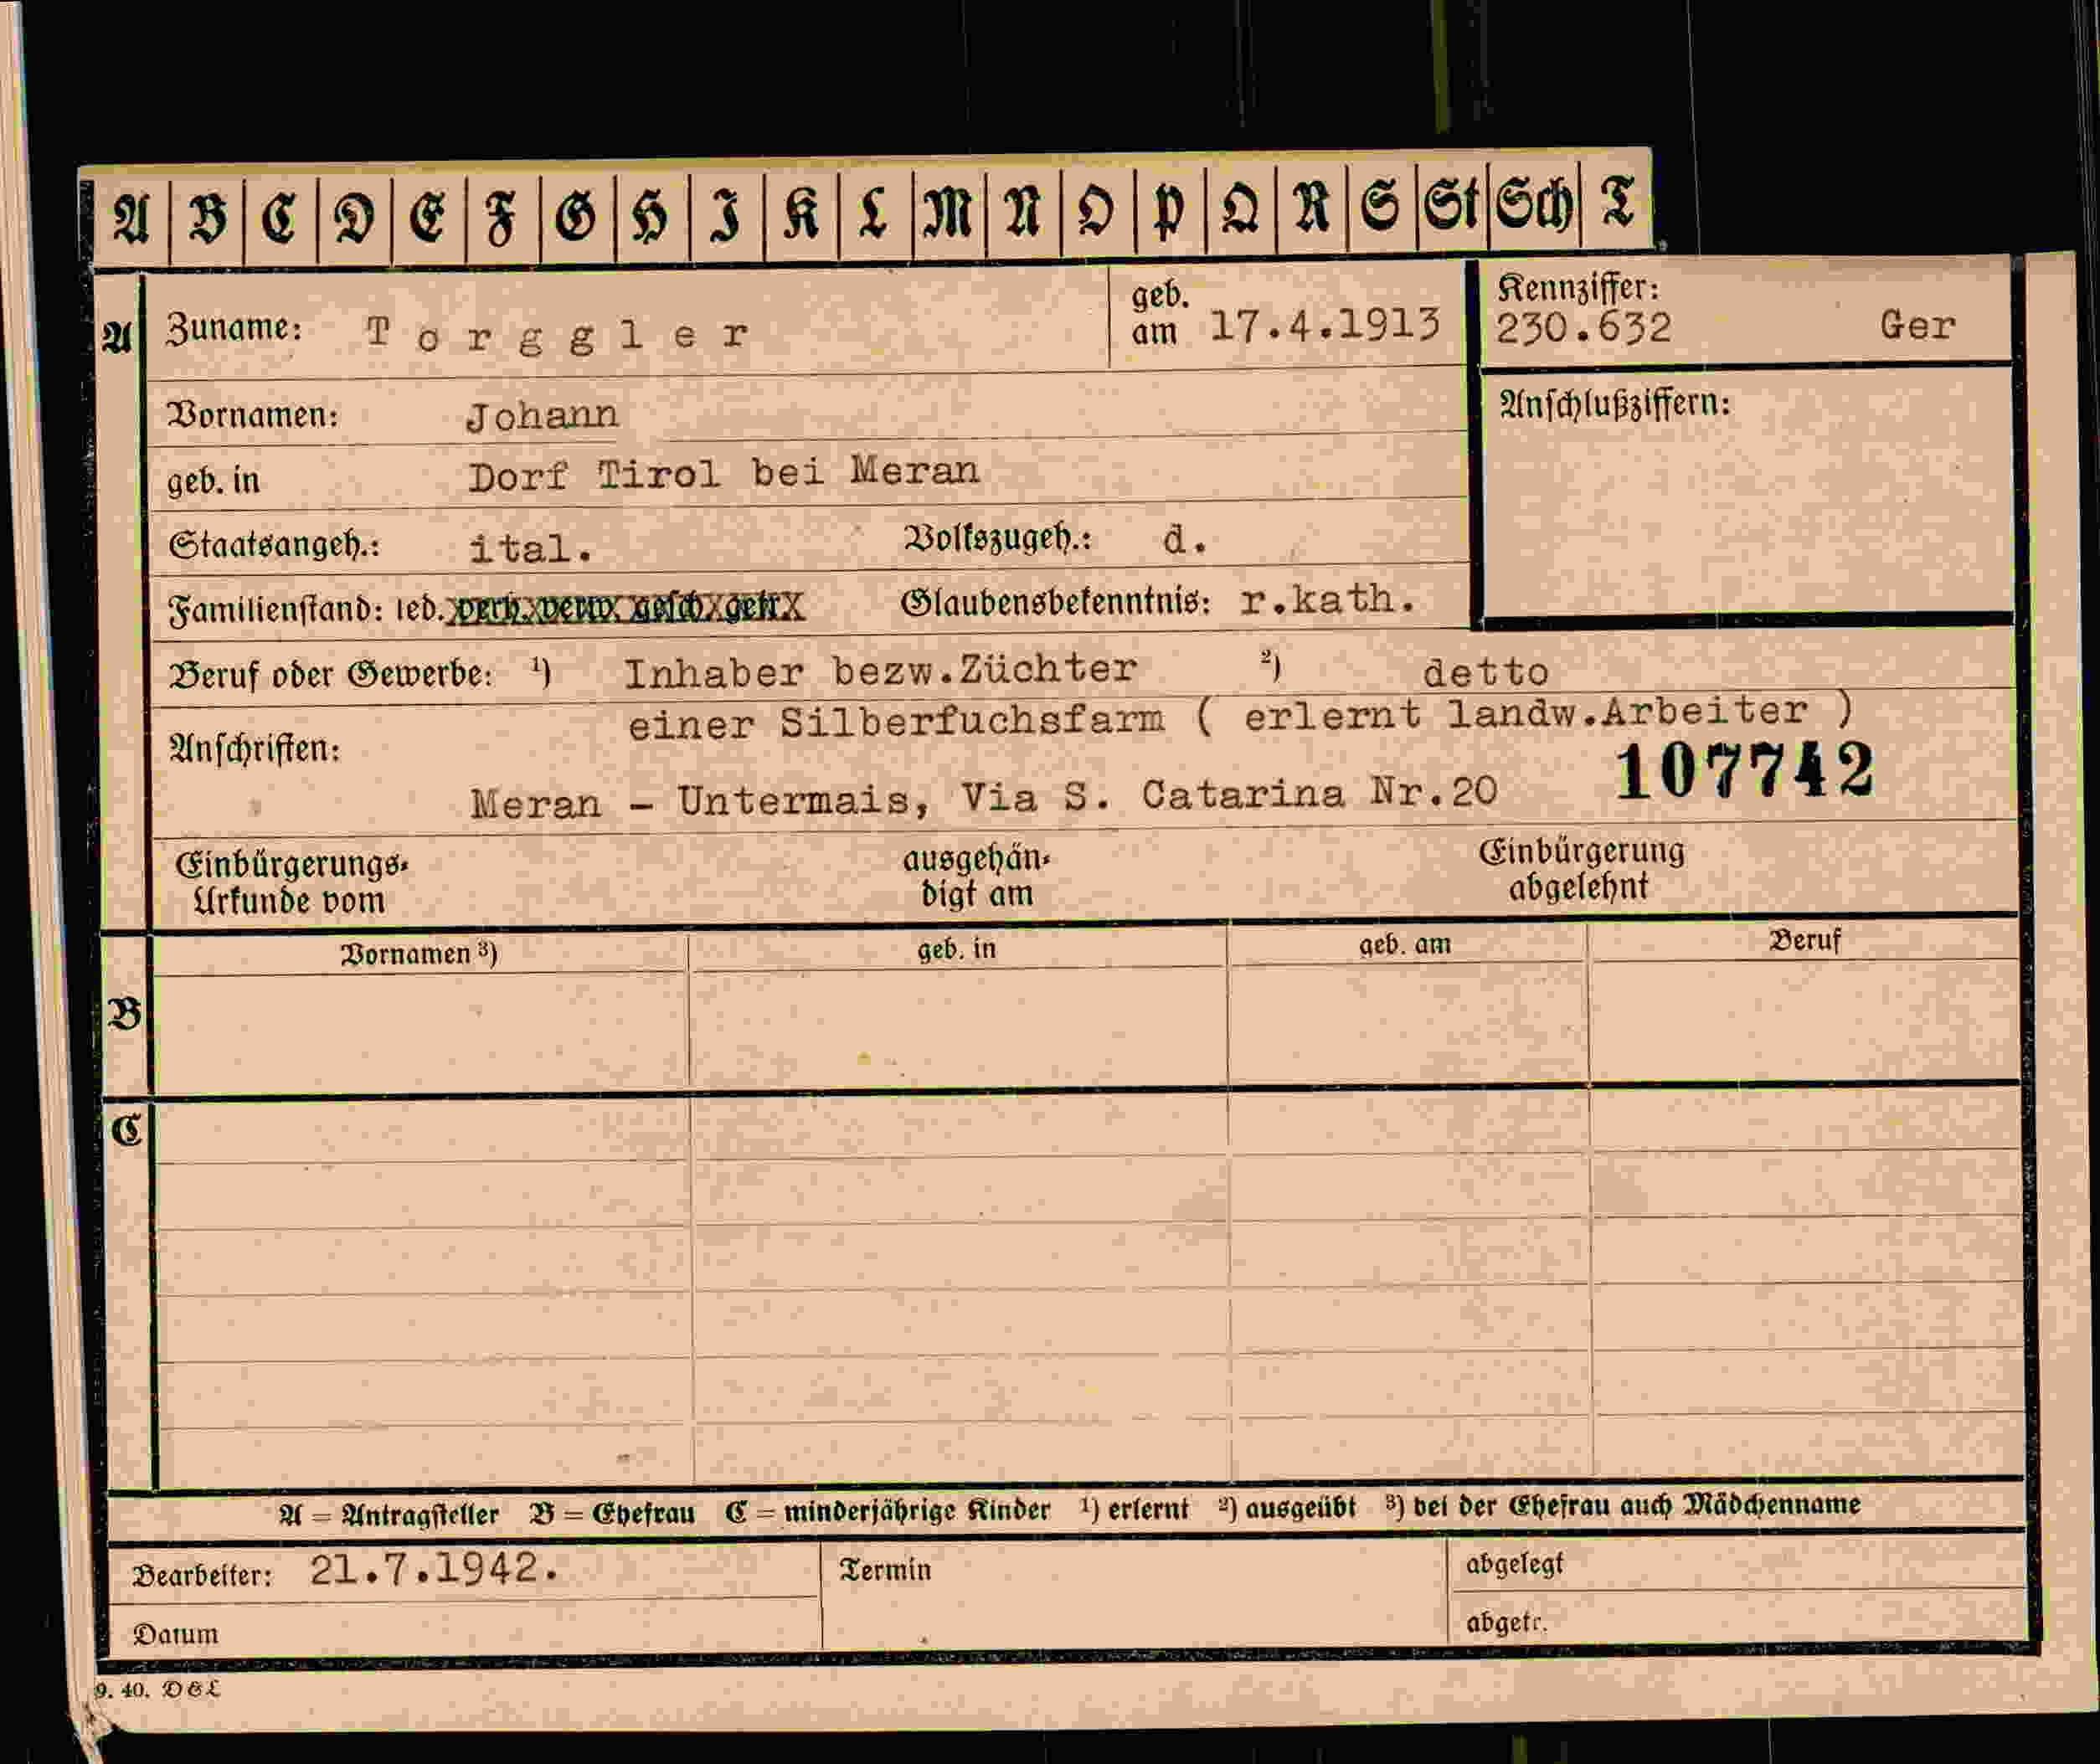 A B C D E F G H I K L M N O P Q R S St Sch T
A Zuname: Torggler geb. am 17.4.1913 Kennziffer: 230.632 Ger
Vornamen: Johann Anschlußziffern:
geb. in Dorf Tirol bei Meran
Staatsangeh.: ital. Volkszugeh.: d.
Familienstand: led. verh. verw. gesch. getr. Glaubensbekenntnis: r.kath.
Beruf oder Gewerbe: ¹) Inhaber bezw.Züchter ²) detto
einer Silberfuchsfarm ( erlernt landw.Arbeiter )
Anschriften:
107742
Meran - Untermais, Via S. Catarina Nr.20
Einbürgerungs- ausgehän- Einbürgerung
Urkunde vom digt am abgelehnt
Vornamen ³) geb. in geb. am Beruf
B
C
A = Antragsteller B = Ehefrau C = minderjährige Kinder ¹) erlernt ²) ausgeübt ³) bei der Ehefrau auch Mädchenname
Bearbeiter: 21.7.1942. Termin abgelegt
Datum abgetr.
9. 40. D & L